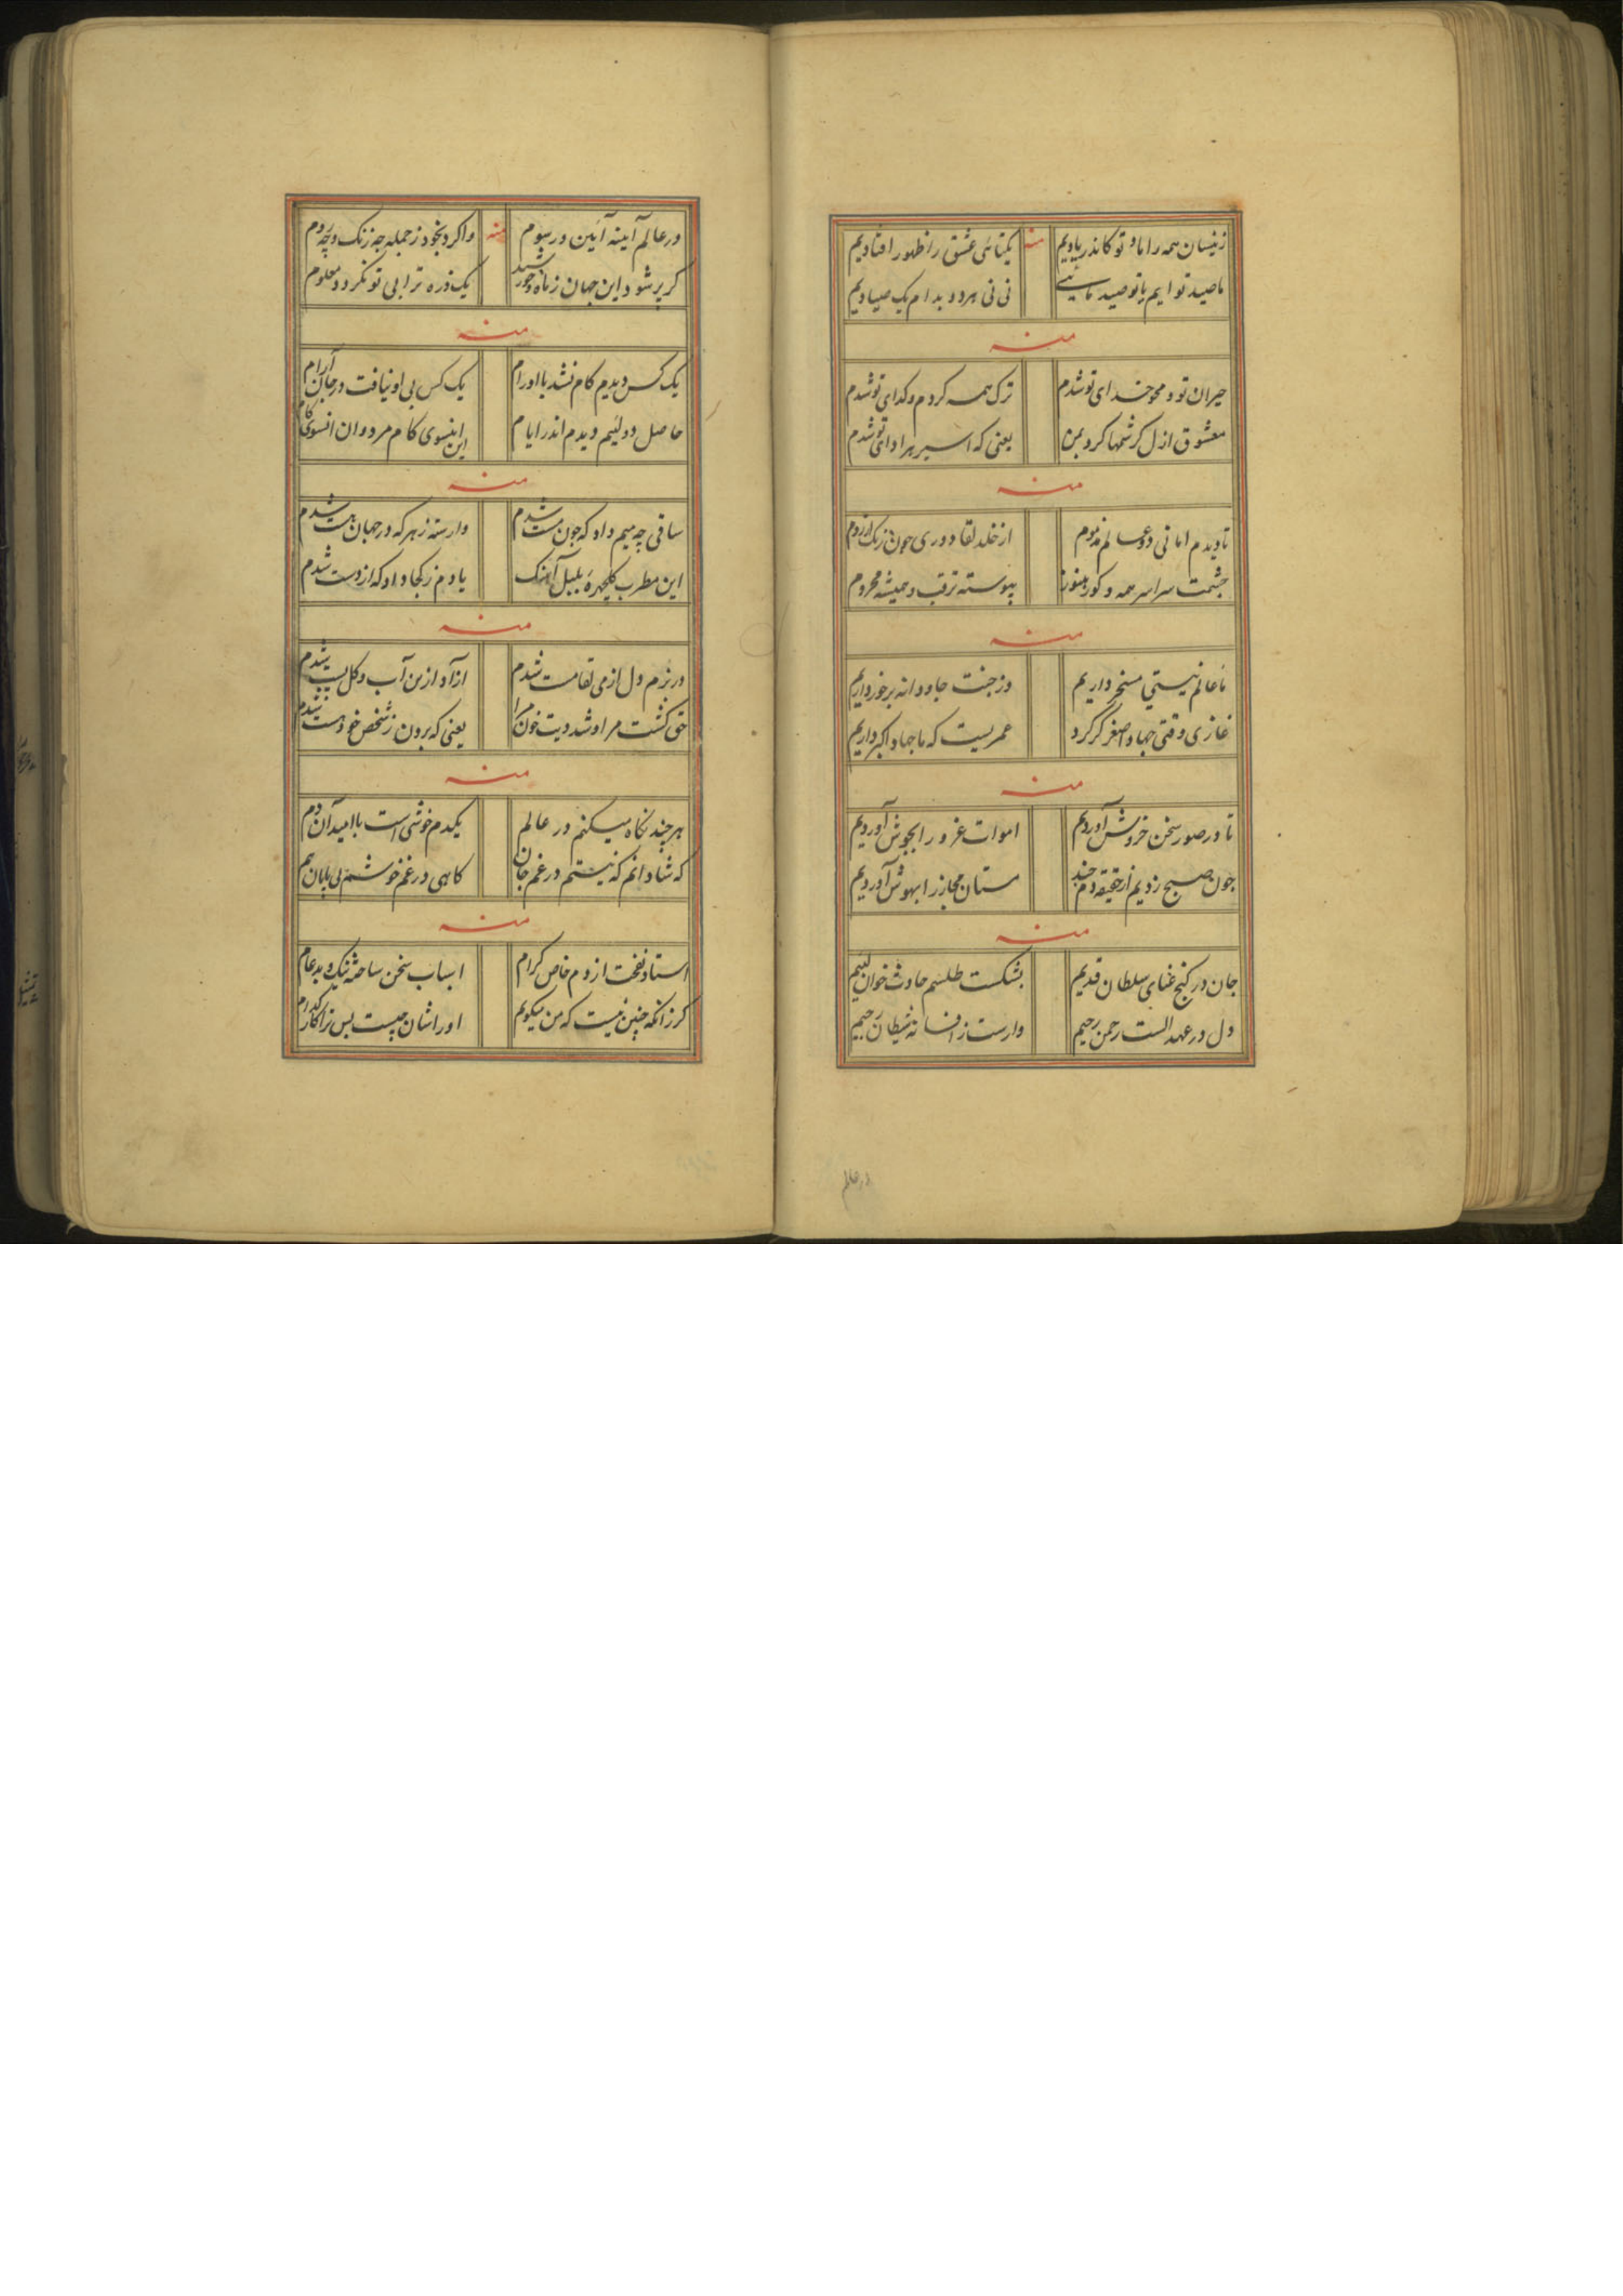 زینسان همه را ما و تو کاندر یادیم منه یکتائی عشق را ظهور افتادیم
ما صید تو ایم یا تو صید نی نی هر دو بدام یک صیادیم
منه
حیران تو و محو خدای تو شدم ترک همه کردم و کدای تو شدم
معشوق ازل کرشمها کرد بمن یعنی که اسیر هر ادای تو شدم
منه
تا دیدم امانی دو عالم مذموم از خلد لقا دوری چون زنک از روم
چشمت سراسر همه و کور هنوز پیوسته ترقب و همیشه محروم
منه
ما عالم نیستی مسخر داریم وز جنت جاودانه برخورداریم
غازی وقتی جهاد اصغر کر کرد عمریست که ما جهاد اکبر داریم
منه
تا در صور سخن خروش آوردیم اموات غرور را بجوش آوردیم
چون صبح زدیم از حقیقه دم چند مستان مجاز را بهوش آوردیم
منه
جان در کنج غنای سلطان قدیم بشکست طلسم حادث خوان لئیم
دل در عهد الست رحمن رحیم وارست ز افسانه شیطان رجیم
در عالم
در عالم آینه آئین در بوم منه واکرد بخود ز جمله چه زنک و چه روم
کر پر شود این جهان ز ماه و خورشید یک ذره ترا بی تو نکردد معلوم
منه
یک کس دیدم کام نشد با او رام یک کس بی او نیافت در جان آرام
حاصل دو لئیم دیدم اندر ایام این اینسوی کام مرد و ان انسوی کام
منه
ساقی چه میم داد که چون مست شدم وارسته ز هر که در جهان هست شدم
این مطرب کلچهرهٔ بلبل آهنک یادم ز کجا داد که از دست شدم
منه
در بزم دل از می لقا مست شدم ازآد ازین آب و کل پست شدم
حق کشت مرا و شد دیت خون مرا یعنی که برون ز شخص خود هست شدم
منه
هر چند نکاه میکنم در عالم یکدم خوشی است با امید آن دم
که شادانم که نیستم در غم جان کاهی در غم خوشم بی پایان هم
منه
استاد نفخت از دم خاص کرام اسباب سخن ساخته نیک و بد عام
کر زانکه چنین نیست که من میکویم او را شان چیست پس ترا کار کدام